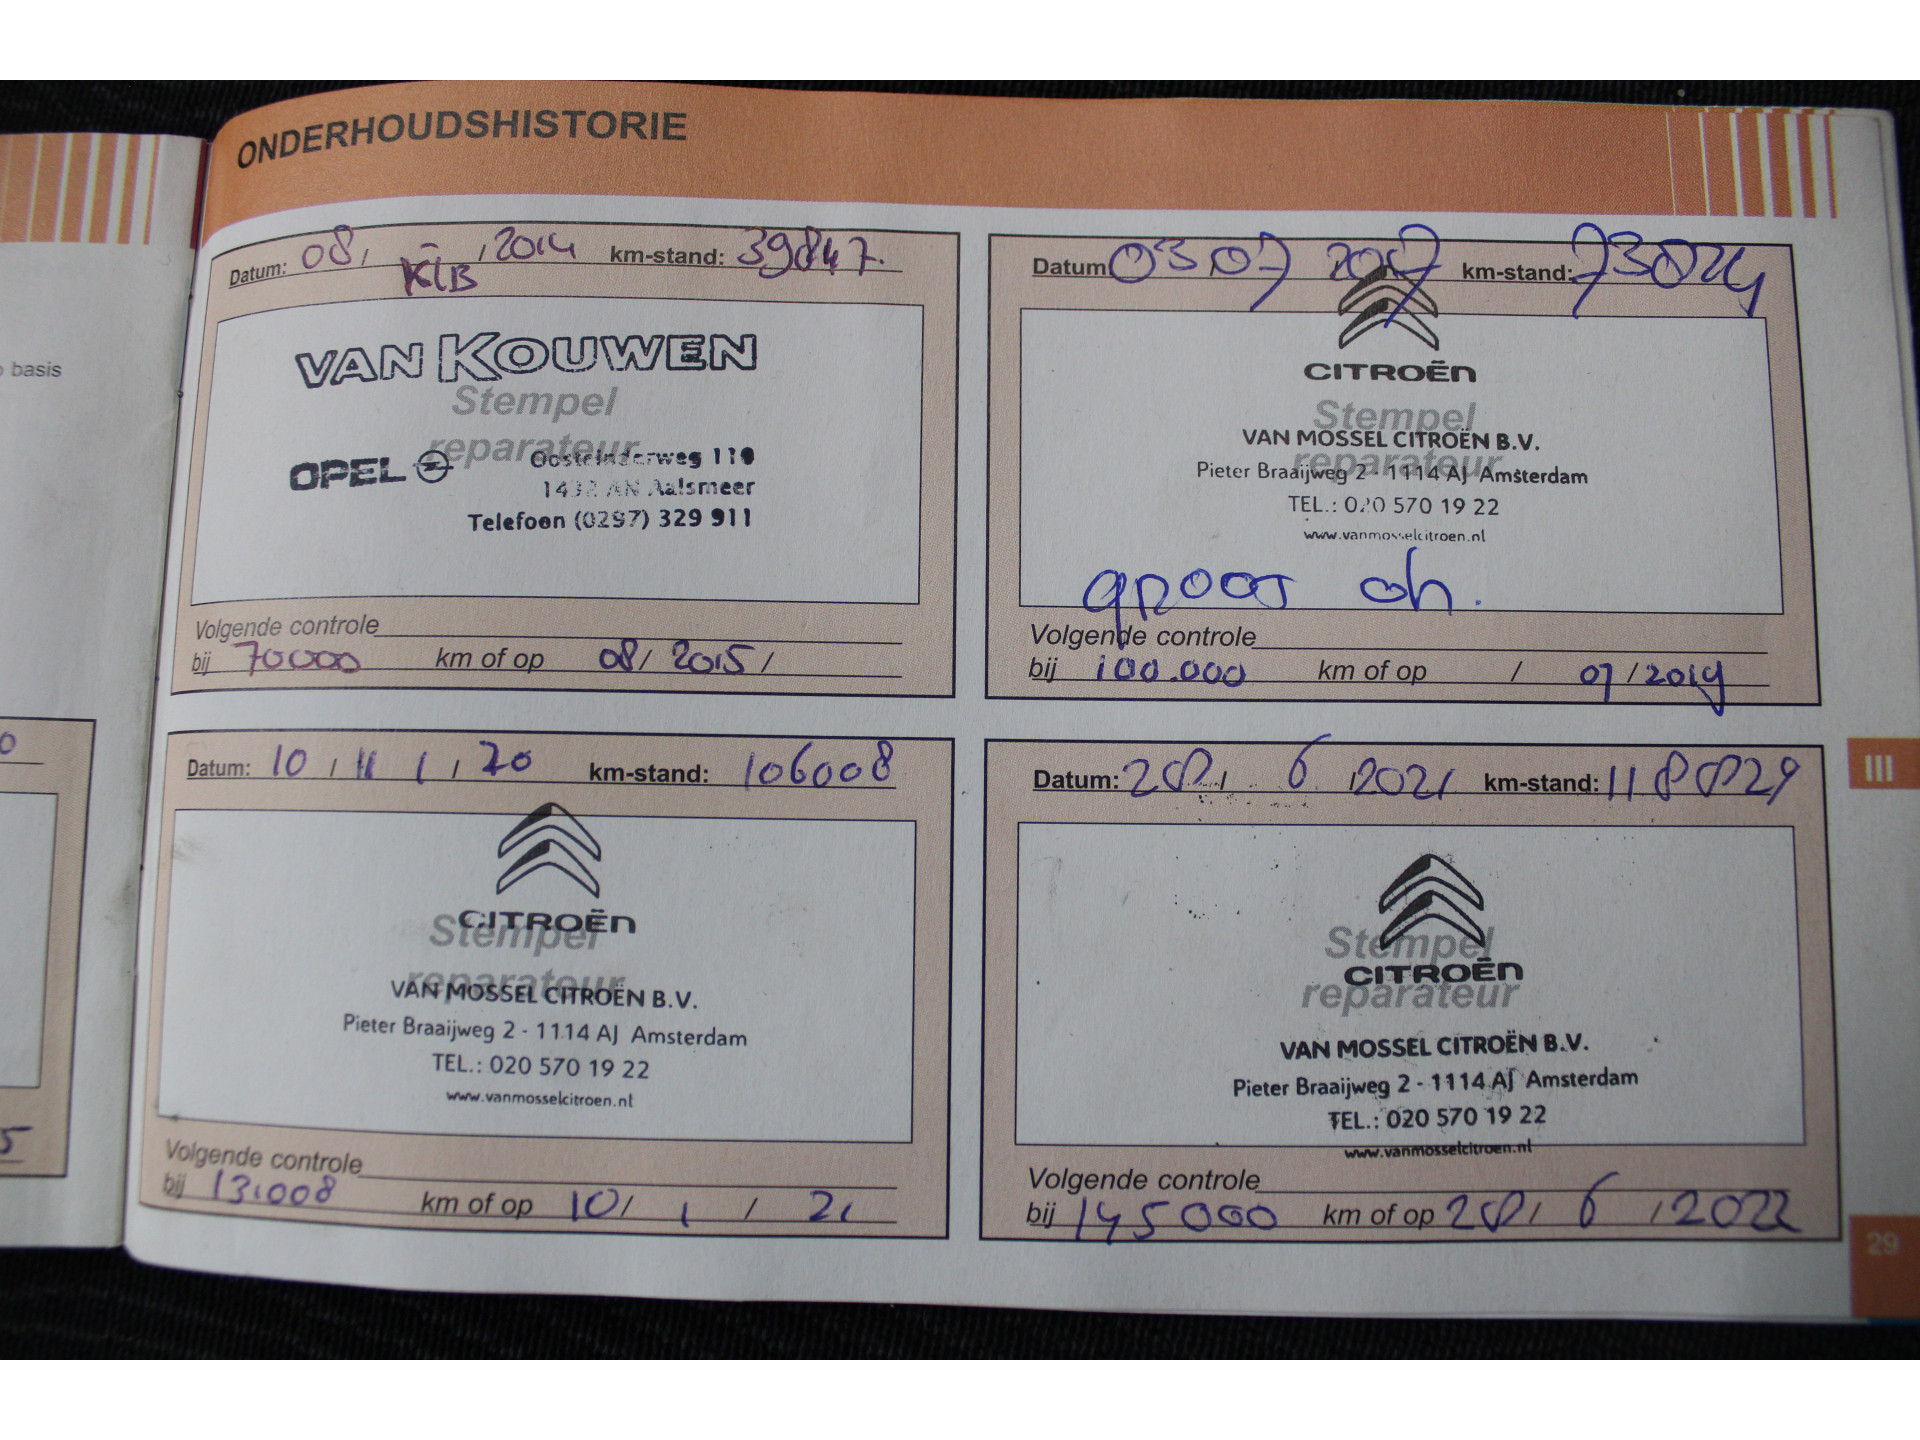 ONDERHOUDSHISTORIE
basis
Datum: 08/ - /2014 km-stand: 39847.
KLB
VAN KOUWEN
Stempel
reparateur
OPEL Oosteinderweg 110
1432 AN Aalsmeer
Telefoon (0297) 329 911
Volgende controle
bij 70000 km of op 08/ 2015/
Datum: 03 07 2017 km-stand: 73024
CITROËN
Stempel
VAN MOSSEL CITROËN B.V.
reparateur
Pieter Braaijweg 2 - 1114 AJ Amsterdam
TEL.: 020 570 19 22
www.vanmosselcitroen.nl
groot oh.
Volgende controle
bij 100.000 km of op / 07/2019
Datum: 10 / / 20 km-stand: 106008
CITROËN
Stempel
reparateur
VAN MOSSEL CITROËN B.V.
Pieter Braaijweg 2 - 1114 AJ Amsterdam
TEL.: 020 570 19 22
www.vanmosselcitroen.nl
Volgende controle
bij 13.008 km of op 10/ 1 / 21
Datum: 28/ 6 /2021 km-stand: 118829
Stempel
CITROËN
reparateur
VAN MOSSEL CITROËN B.V.
Pieter Braaijweg 2 - 1114 AJ Amsterdam
TEL.: 020 570 19 22
www.vanmosselcitroen.nl
Volgende controle
bij 145000 km of op 28/ 6 /2022
III
29
0
5